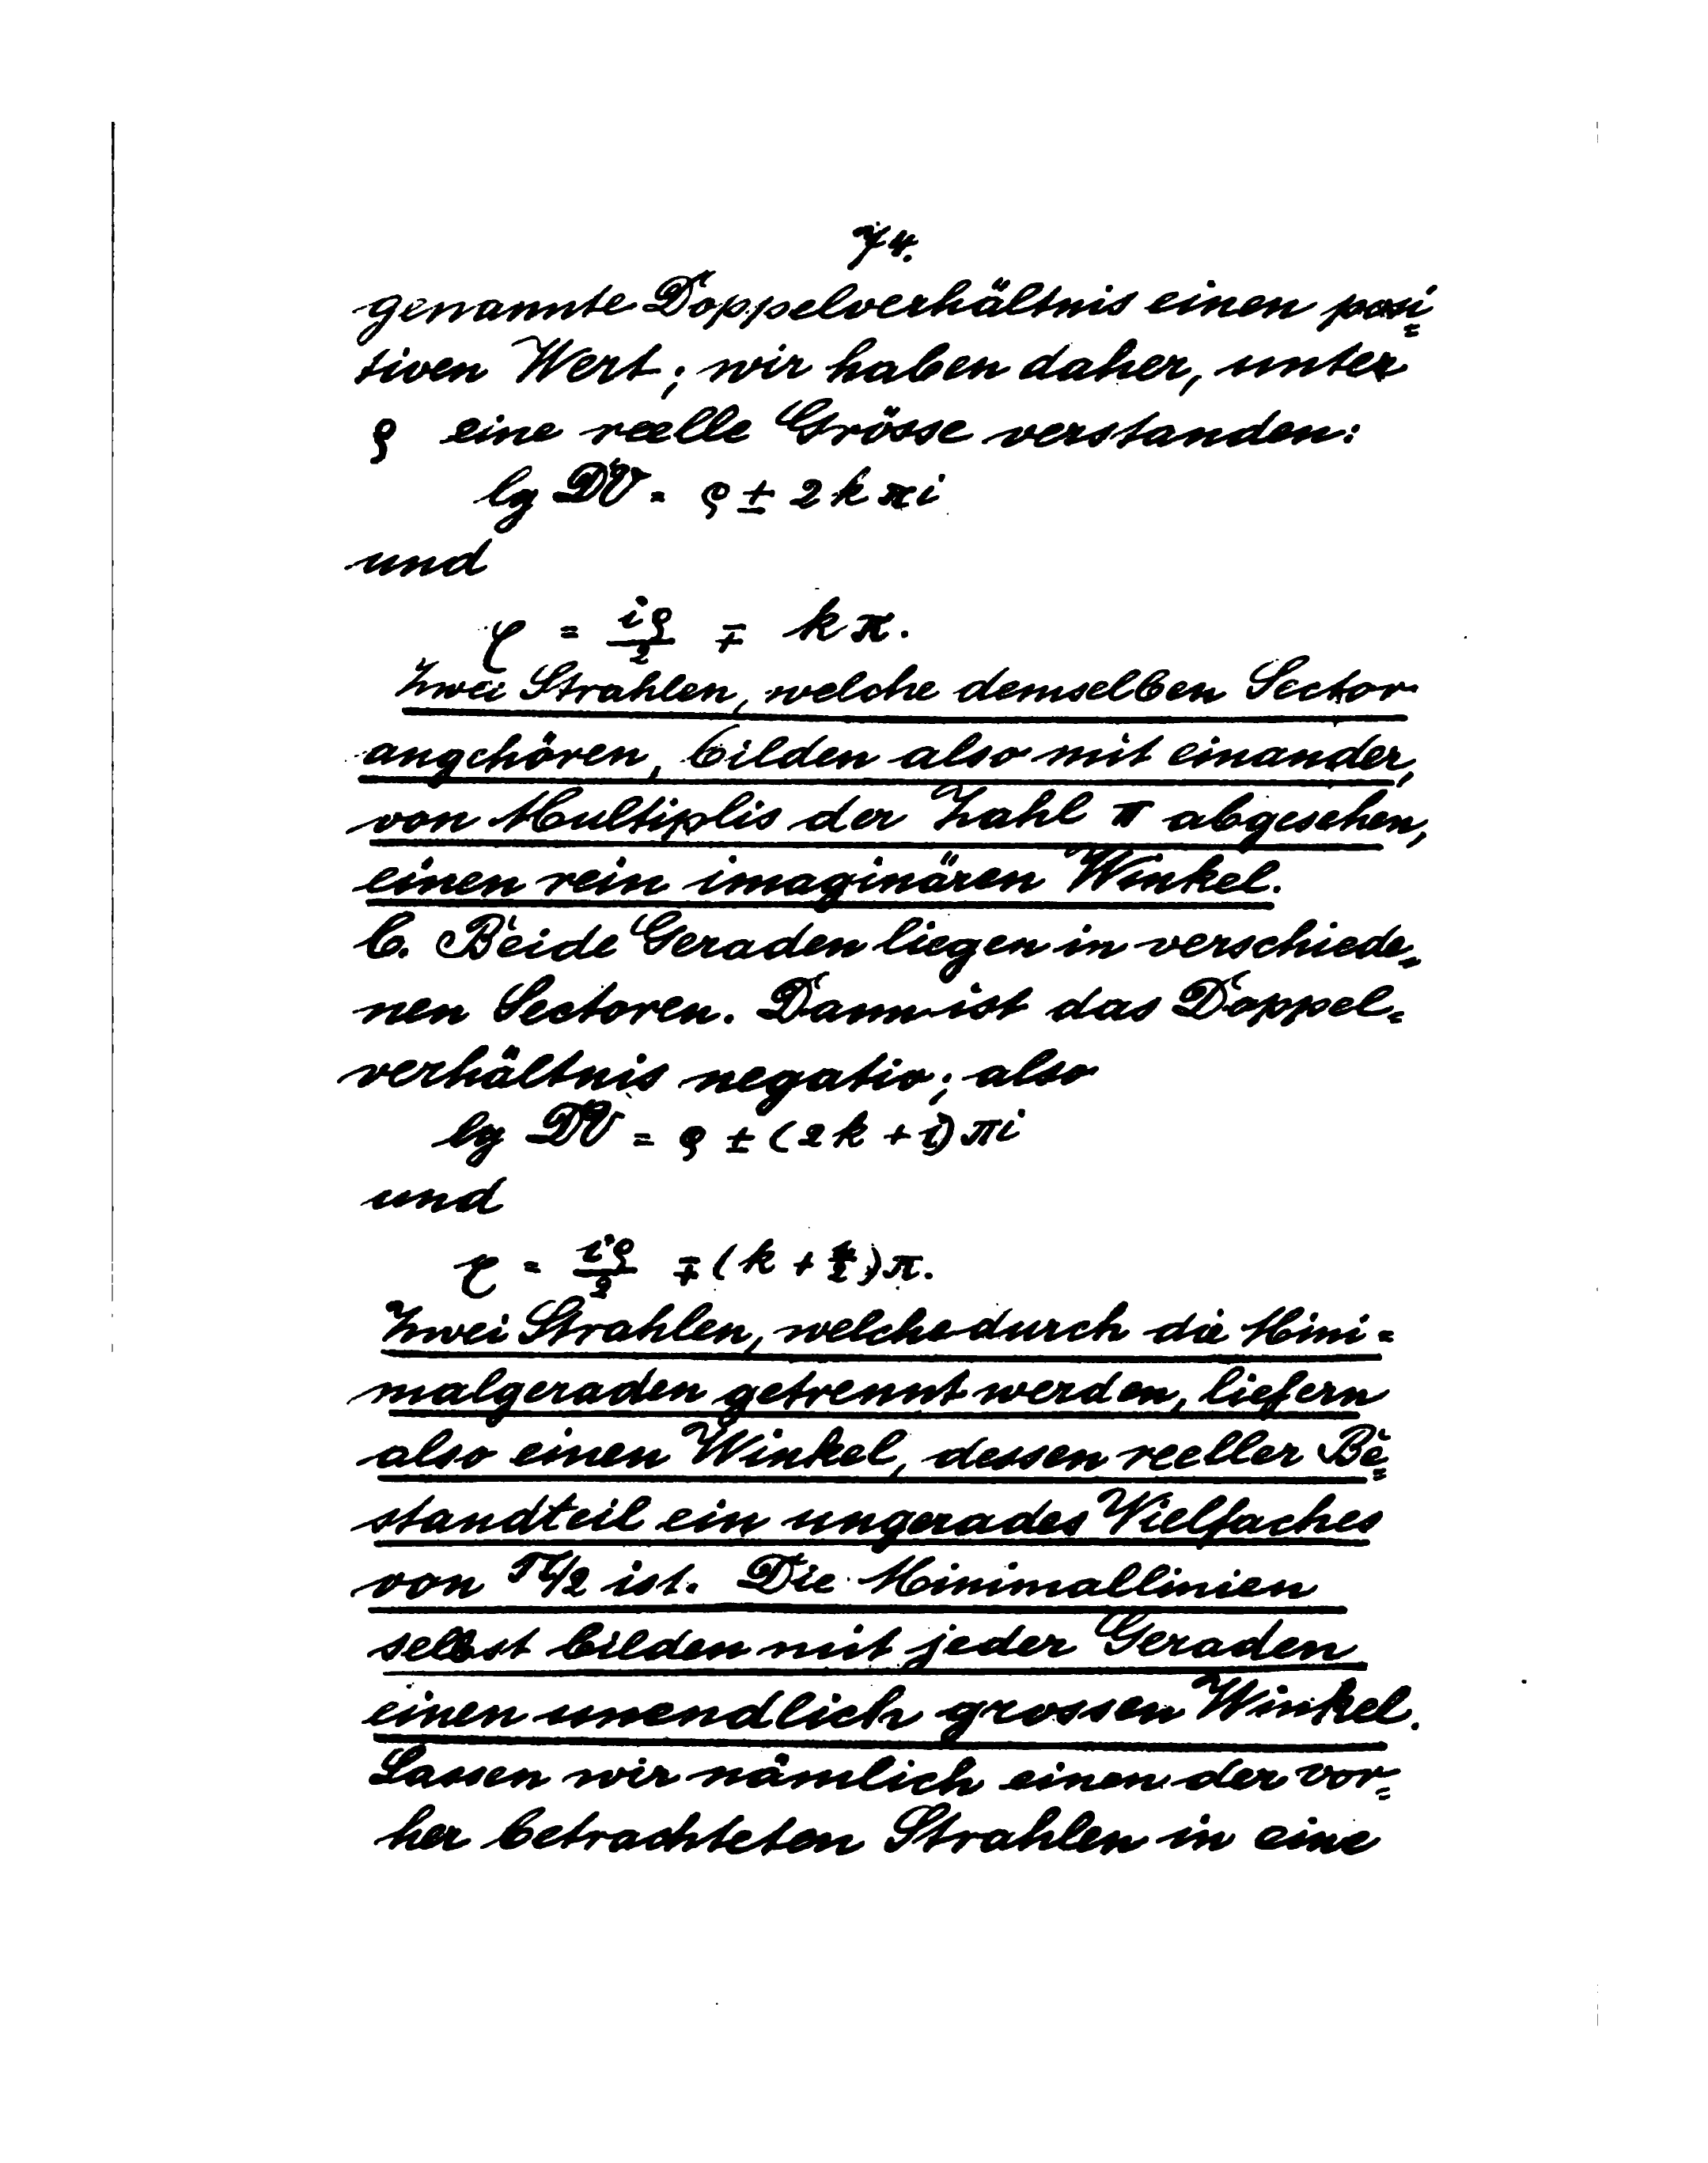 74.
genannte Doppelverhältnis einen posi=
tiven Wert; wir haben daher, unter
ϱ eine reelle Grösse verstanden:
lg DV = ϱ ± 2kπi
und
φ = iϱ/2 ∓ kπ.
Zwei Strahlen, welche demselben Sector
angehören, bilden also mit einander,
von Multiplis der Zahl π abgesehen,
einen rein imaginären Winkel.
b. Beide Geraden liegen in verschiede=
nen Sectoren. Dann ist das Doppel=
verhältnis negativ; also
lg DV = ϱ ± (2k + 1)πi
und
φ = iϱ/2 ∓ (k + 1/2)π.
Zwei Strahlen, welche durch die Mini=
malgeraden getrennt werden, liefern
also einen Winkel, dessen reeller Be=
standteil ein ungerades Vielfaches
von π/2 ist. Die Minimallinien
selbst bilden mit jeder Geraden
einen unendlich grossen Winkel.
Lassen wir nämlich einen der vor=
her betrachteten Strahlen in eine